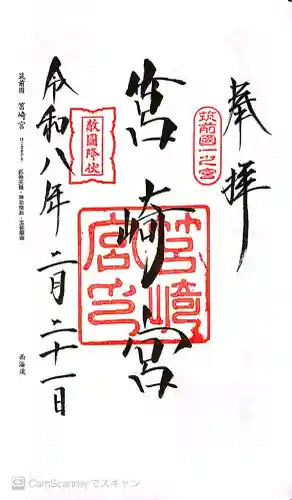 奉拝
筑前國一之宮
筥崎宮
筥崎宮印
敵國降伏
令和八年二月二十一日
筑前国 筥崎宮
西海道
CS CamScannerでスキャン